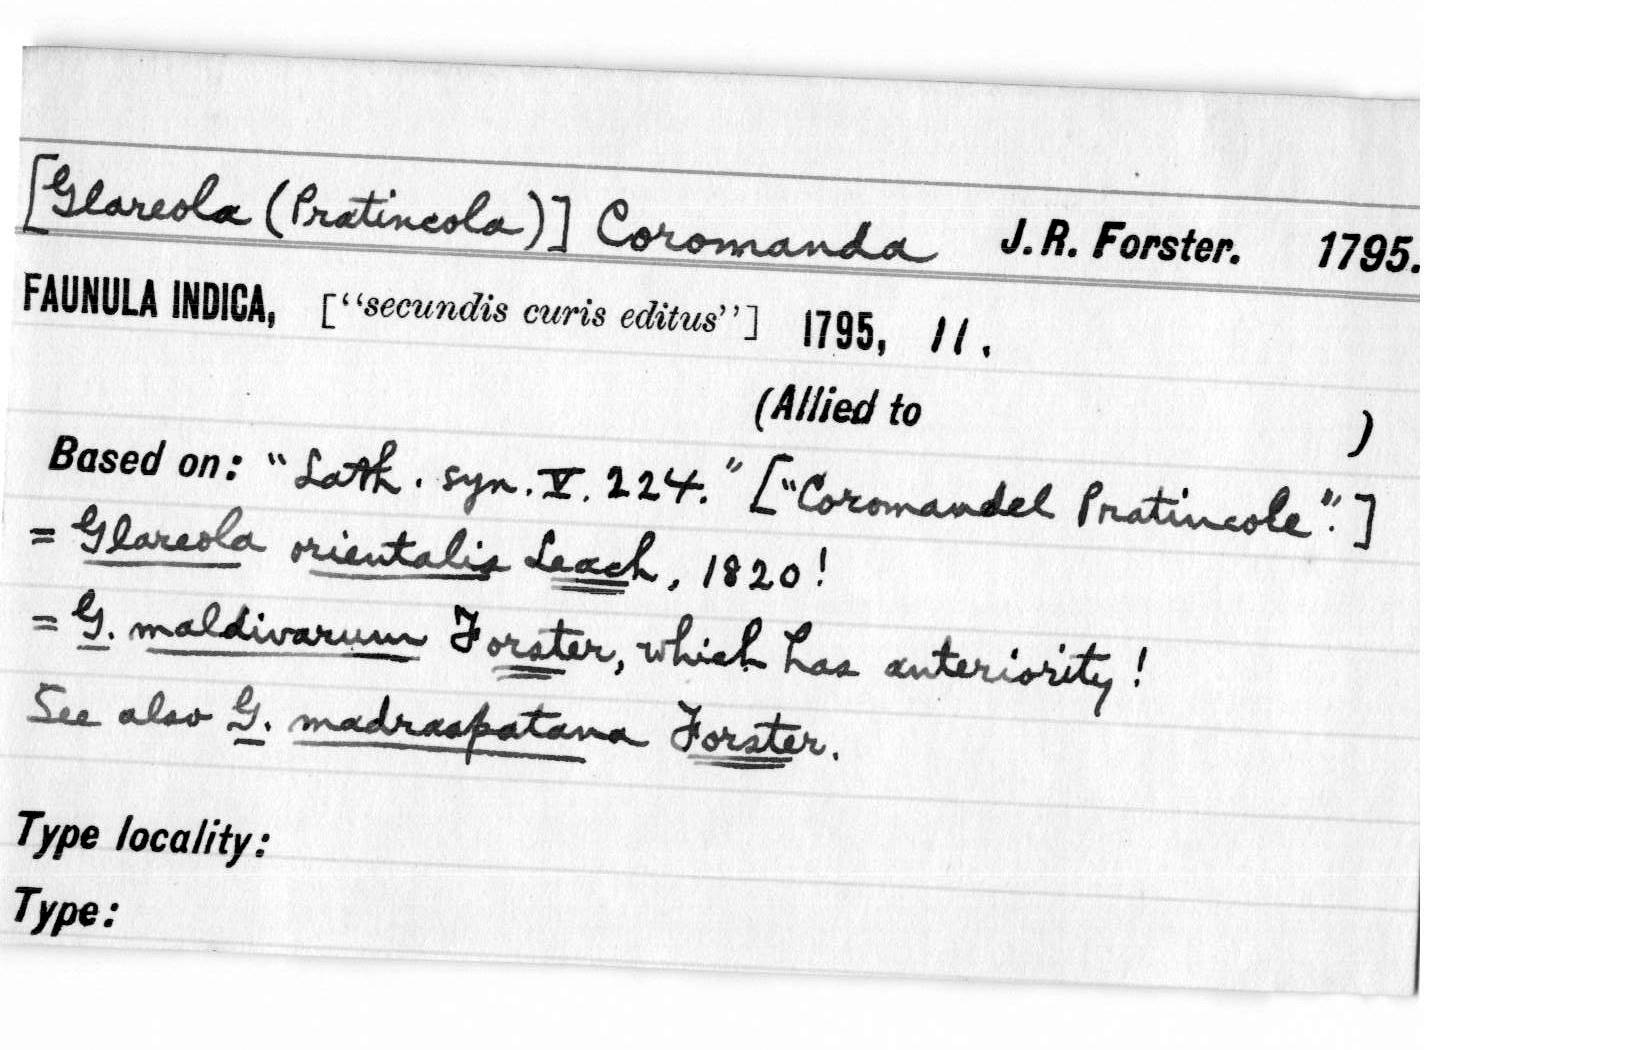 [Glareola (Pratincola)] Coromanda J. R. Forster. 1795.
FAUNULA INDICA, ["secundis curis editus"] 1795, 11.
(Allied to )
Based on: "Lath. syn. V. 224." ["Coromandel Pratincole".]
= Glareola orientalis Leach, 1820!
= G. maldivarum Forster, which has anteriority!
See also G. madraspatana Forster.
Type locality:
Type: